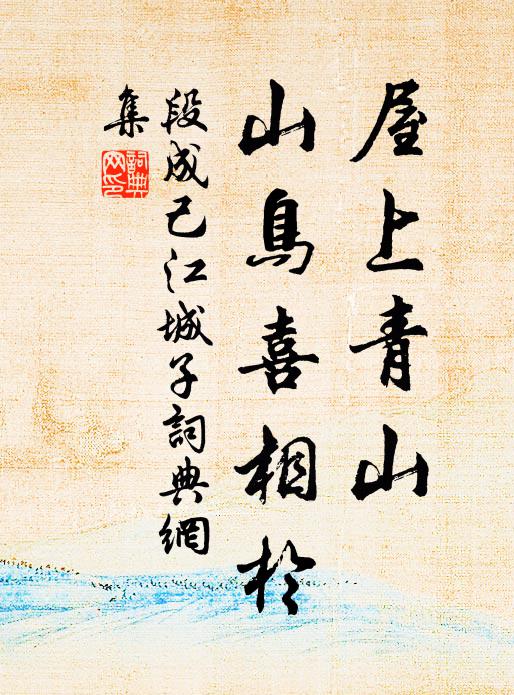 屋上青山
山鳥喜相於
段成己江城子詞典網
集
詞典
网印